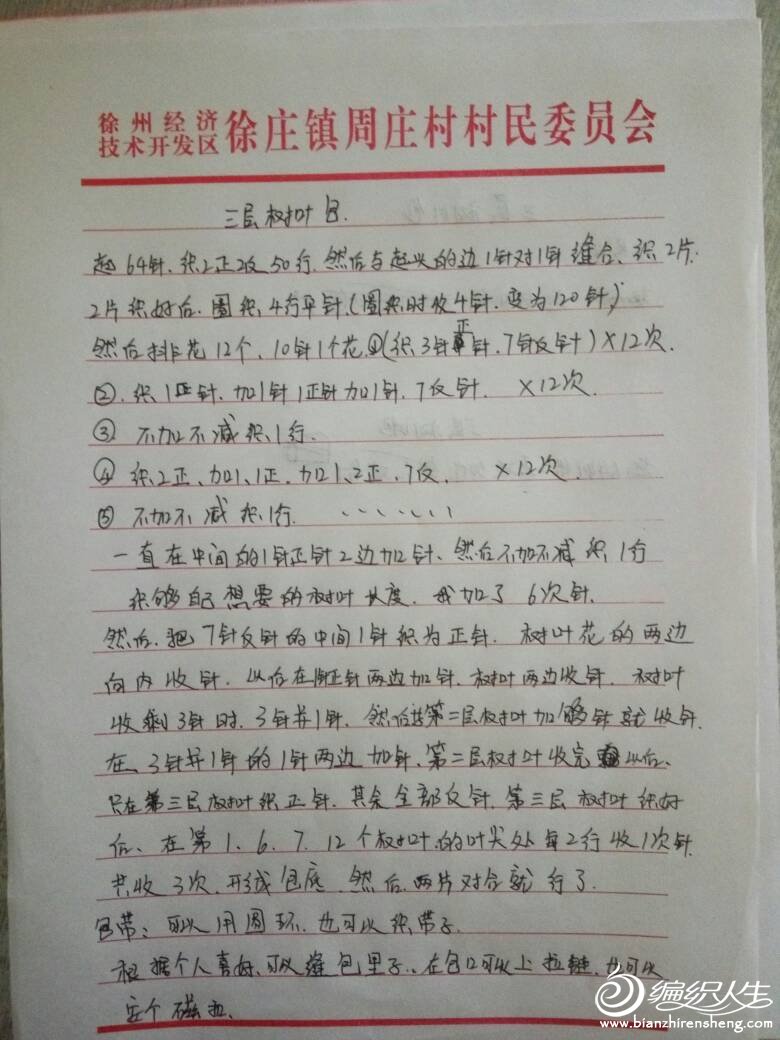 徐州经济
技术开发区徐庄镇周庄村村民委员会
三层树叶包.
起64针.织2正2反50行.然后与起头的边1针对1针缝合、织2片.
2片织好后.圈织4行平针.(圈织时收4针.变为120针)
然后排花12个、10针1个花.①(织3针正针.7针反针)×12次.
②.织1正针.加1针1正针加1针.7反针. ×12次.
③ 不加不减织1行.
④ 织2正、加1、1正.加1、2正.7反. ×12次.
⑤ 不加不减织1行. .......
一直在中间的1针正针2边加针、然后不加不减织1行
织够自己想要的树叶长度.我加了6次针.
然后.把7针反针的中间1针织为正针. 树叶花的两边
向内收针. 以后在正针两边加针.树叶两边收针. 树叶
收剩3针时.3针并1针.然后第二层树叶加够针就收针.
在3针并1针的1针两边加针.第二层树叶收完以后、
只在第三层树叶织正针.其余全部反针.第三层树叶织好
后、在第1.6.7.12个树叶的叶尖处每2行收1次针
共收3次.形成包底.然后.两片对合就行了.
包带:可以用圆环.也可以织带子.
根据个人喜好、可以缝包里子.在包口可以上拉链.也可以
定个磁扣.
编织人生
www.bianzhirensheng.com